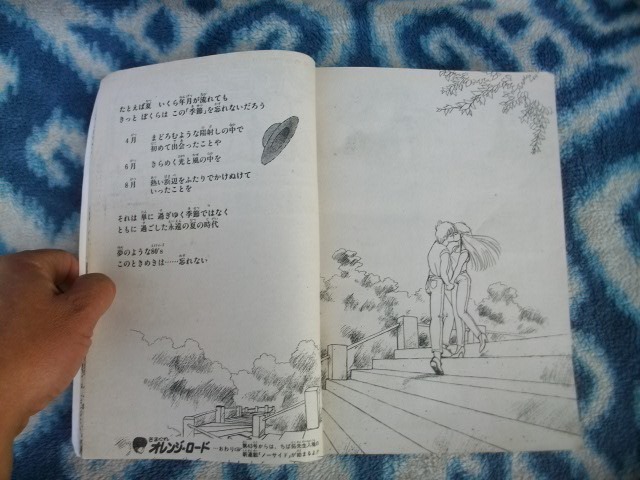 たとえば夏 いくら年月が流れても
きっと ぼくらは この「季節」を忘れないだろう
4月 まどろむような陽射しの中で
初めて出会ったことや
6月 きらめく光と風の中を
8月 熱い浜辺をふたりでかけぬけて
いったことを
それは 単に 過ぎゆく季節ではなく
ともに 過ごした永遠の夏の時代
夢のような80's
このときめきは……忘れない
きまぐれ
オレンジ・ロード
―おわり―
第42号からは、ちば拓先生入魂の
新連載「ノーサイド」が始まるよ!